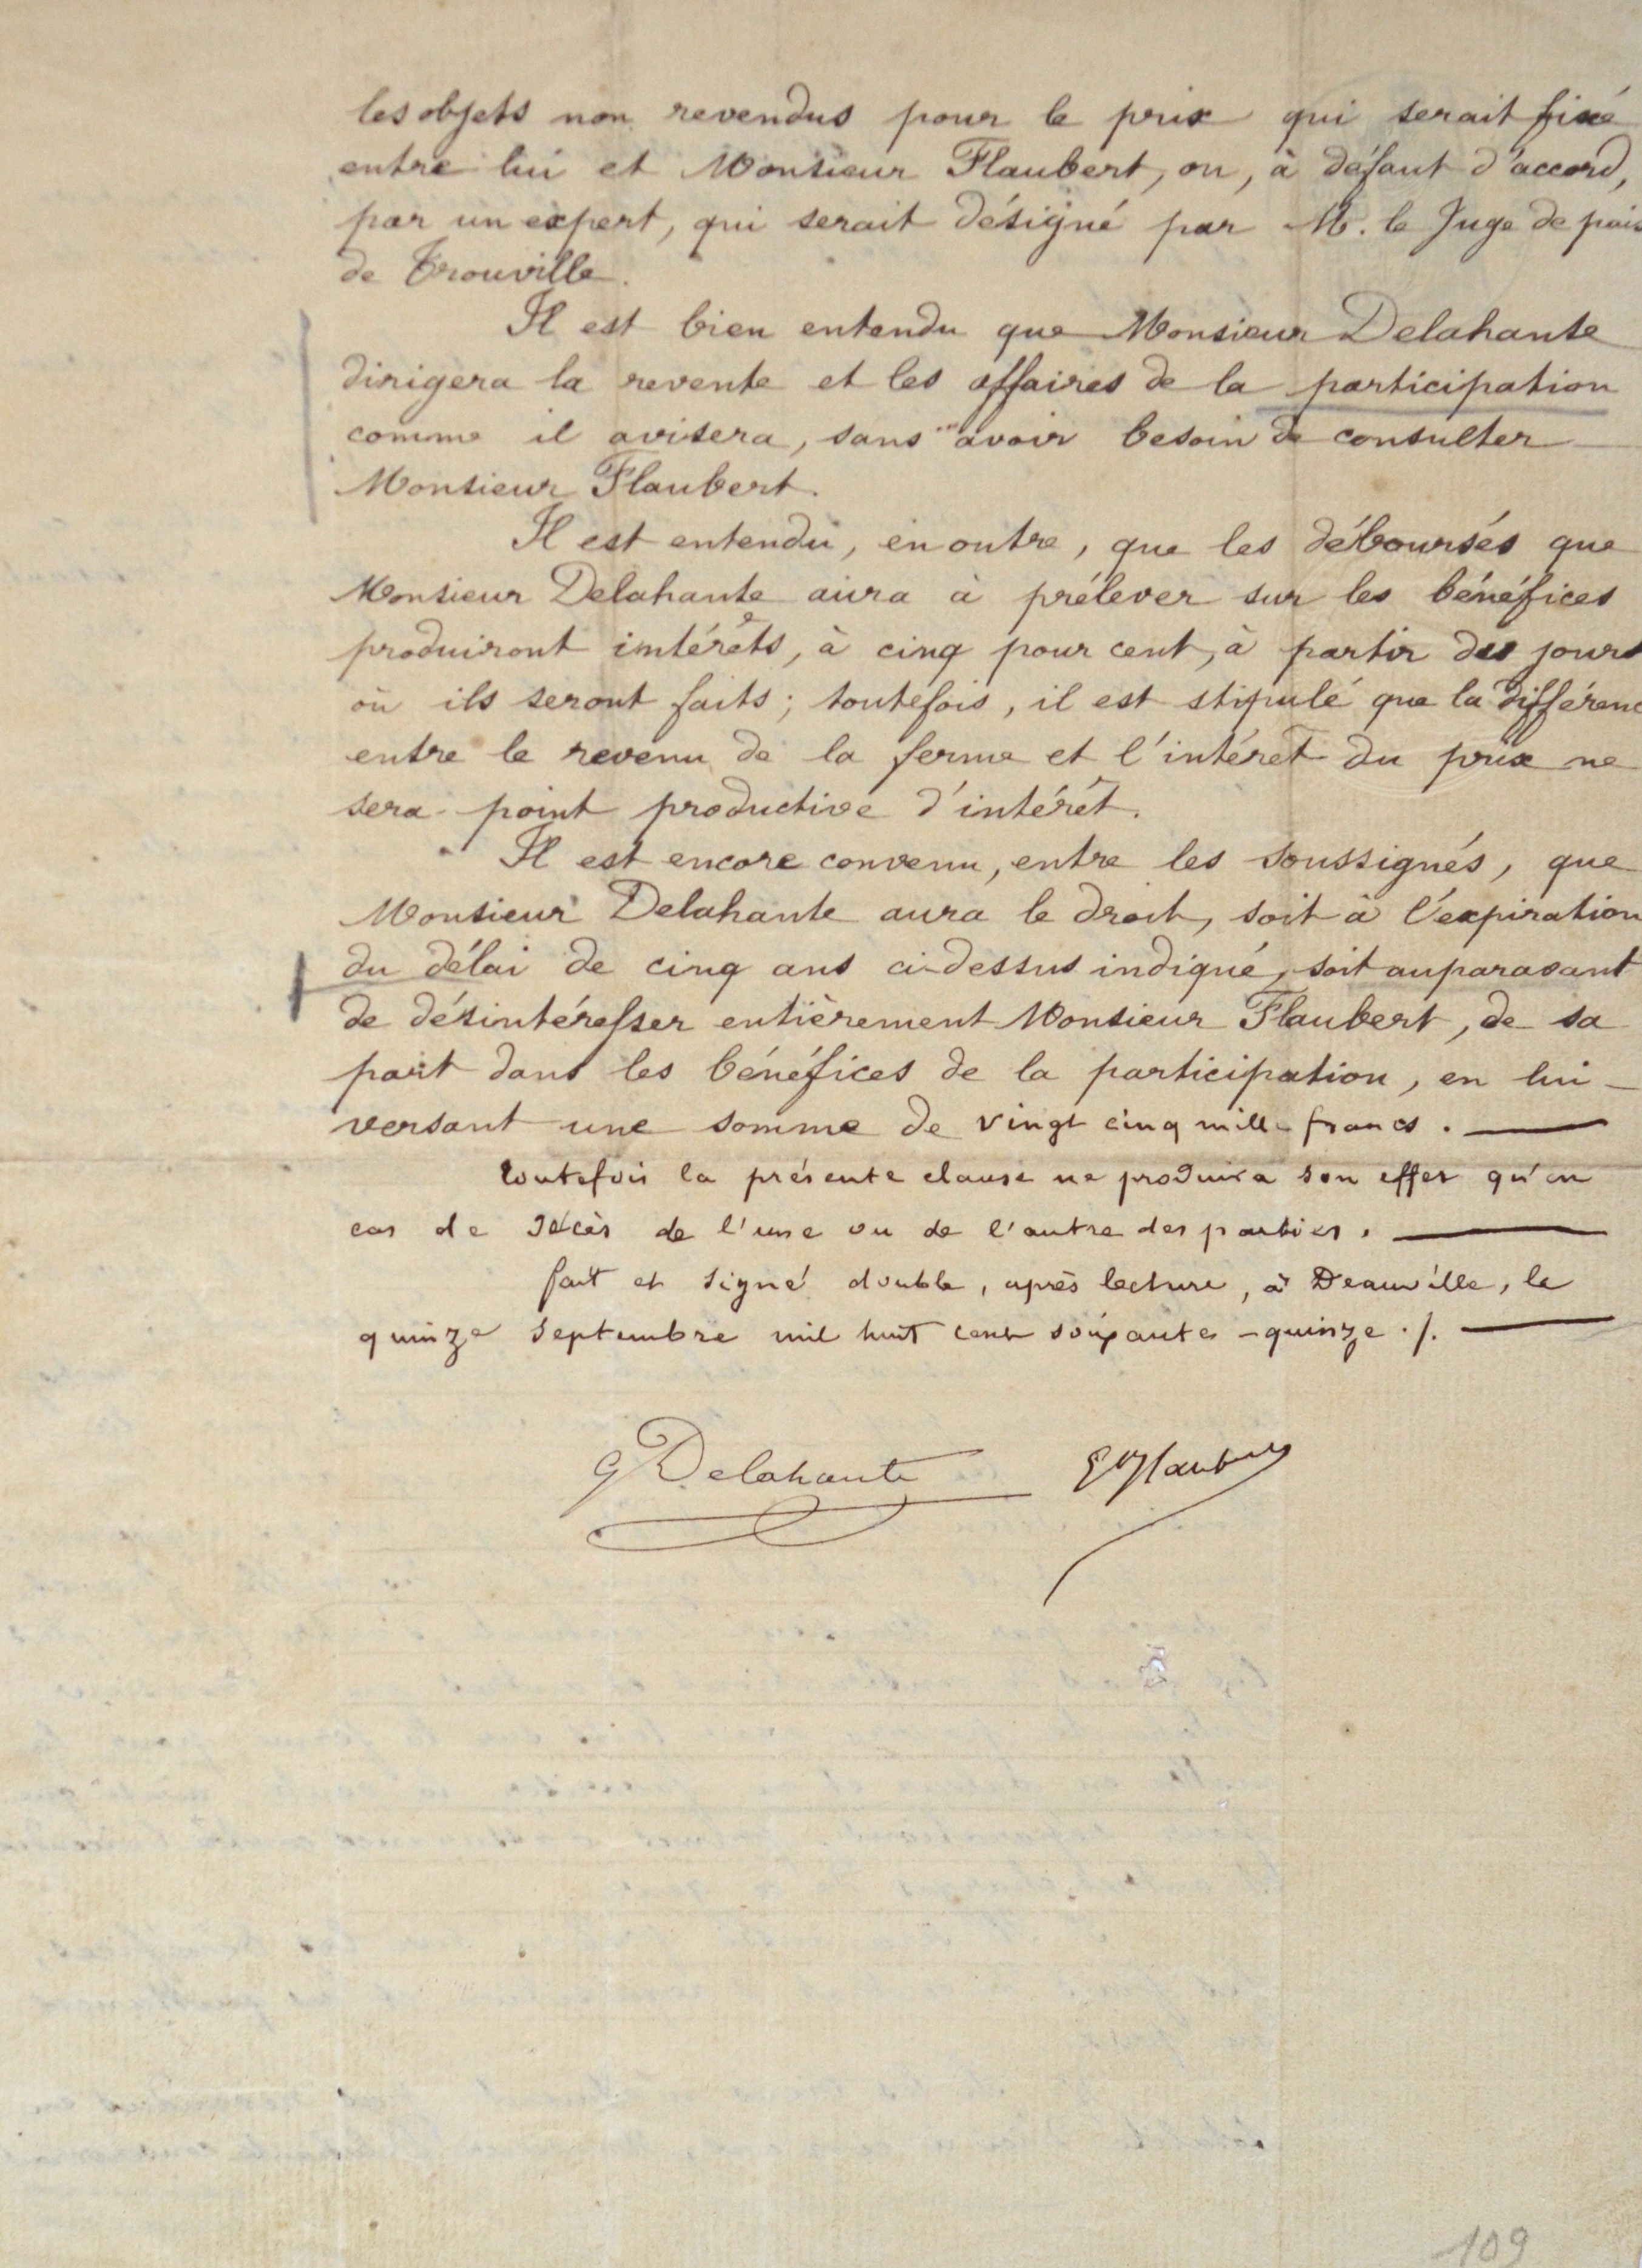 les objets non revendus pour le prix qui serait fixé
entre lui et Monsieur Flaubert, ou, à défaut d'accord,
par un expert, qui serait désigné par M. le Juge de paix
de Trouville.
Il est bien entendu que Monsieur Delahante
dirigera la revente et les affaires de la participation
comme il avisera, sans avoir besoin de consulter
Monsieur Flaubert.
Il est entendu, en outre, que les déboursés que
Monsieur Delahante aura à prélever sur les bénéfices
produiront intérêts, à cinq pour cent, à partir des jours
où ils seront faits; toutefois, il est stipulé que la différenc
entre le revenu de la ferme et l'intérêt du prix ne
sera point productive d'intérêt.
Il est encore convenu, entre les soussignés, que
Monsieur Delahante aura le droit, soit à l'expiration
du délai de cinq ans ci-dessus indiqué, soit auparavant
de désintéresser entièrement Monsieur Flaubert, de sa
part dans les bénéfices de la participation, en lui
versant une somme de vingt cinq mille francs.
toutefois la présente clause ne produira son effet qu'en
cas de décès de l'une ou de l'autre des parties.
fait et signé double, après lecture, à Deauville, le
quinze Septembre mil huit cent soixante-quinze ./.
G Delahante G Flaubert
109